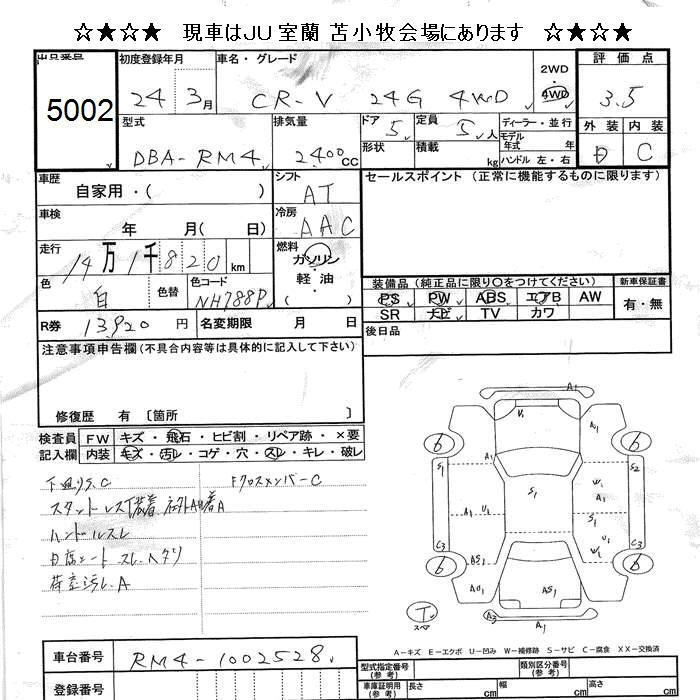 ☆★☆★ 現車はJU室蘭 苫小牧会場にあります ☆★☆★
出品番号 初度登録年月 車名・グレード 2WD 評価点
5002 24 3月 CR-V 24G 4WD 4WD 3.5
型式 排気量 ドア 5 定員 5人 ディーラー・並行 外装 内装
DBA-RM4 2400cc 形状 積載 kg モデル年式 年式 D C
ハンドル 左・右
車歴 自家用・( ) シフト AT セールスポイント (正常に機能するものに限ります)
車検 年 月( 日) 冷房 AAC
走行 14万1千820km 燃料 ガソリン・軽油 ( )
色 白 色替 色コード NH788P
装備品 (純正品に限り○をつけてください) 新車保証書
PS PW ABS エアB AW 有・無
SR ナビ TV カワ
R券 13920円 名変期限 月 日 後日品
注意事項申告欄 (不具合内容等は具体的に記入して下さい)
修復歴 有 〔箇所 〕
検査員記入欄 FW キズ・飛石・ヒビ割・リペア跡・×要
内装 キズ・汚レ・コゲ・穴・スレ・キレ・破レ
下廻りS.C Fクロスメンバー C
スタットレス装着
ハンドルスレ
シート スレ.ヘタリ
荷室汚レ.A
A1
V1 A1
6 6
S1 A1 A1 S2
S1 W1 A1
A1 U1 U1 S1
C3 W1 C3
6 AS1 A1 6
AU1 AS1 A1
T スペア A2 A1
A-キズ E-エクボ U-凹み W-補修跡 S-サビ C-腐食 XX-交換済
車台番号 RM4-1002528
登録番号
型式指定番号(参考) 類別区分番号(参考)
車庫証明用(参考) 長さ cm 幅 cm 高さ cm